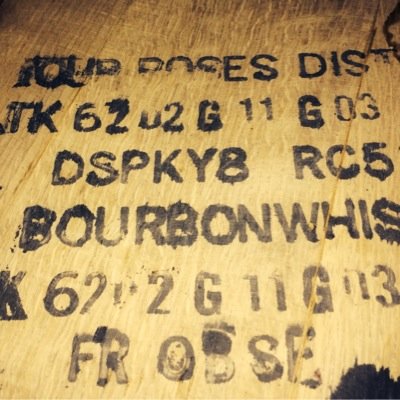 FOUR ROSES DIST
TK 6202 G 11 G 03
DSPKY8 RC5
BOURBONWHIS
K 6202 G 11 G 03
FR OBSE